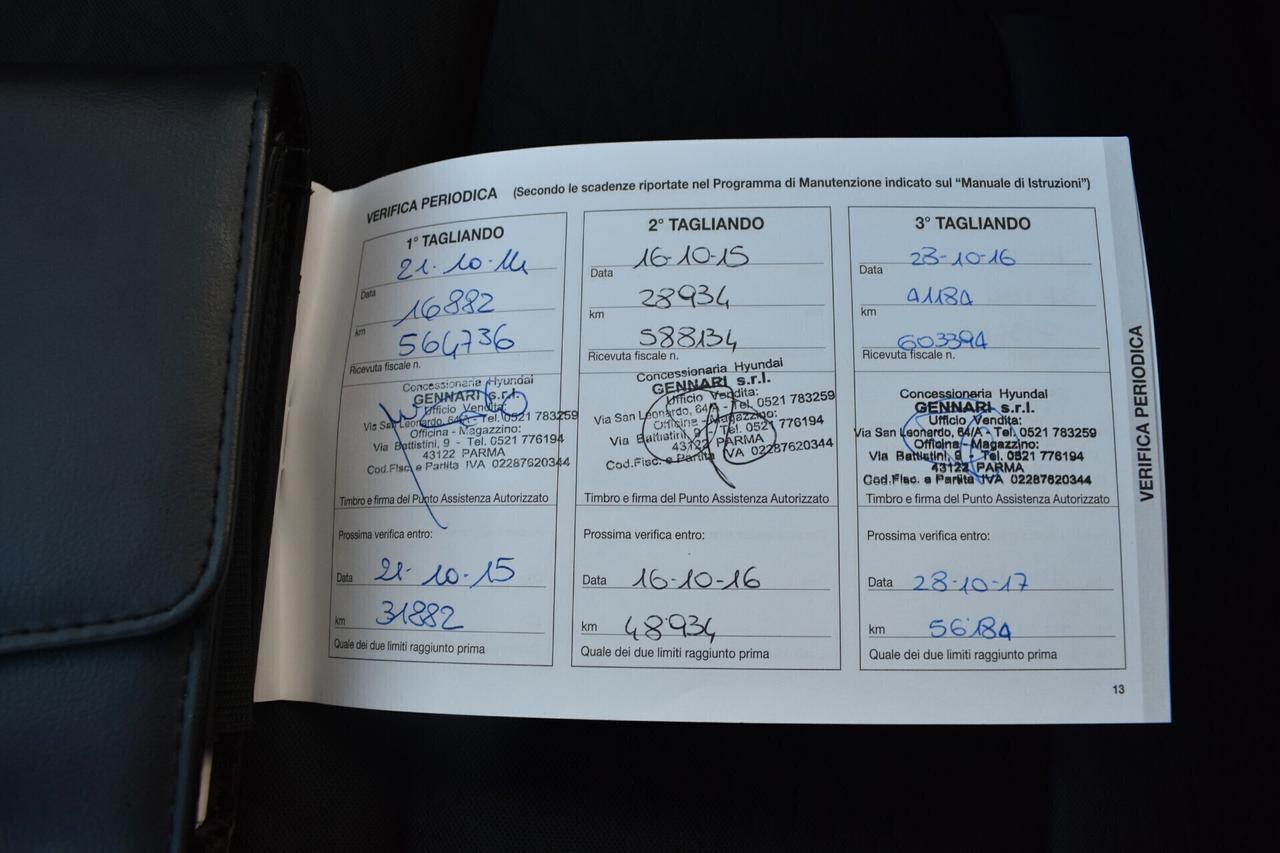 VERIFICA PERIODICA (Secondo le scadenze riportate nel Programma di Manutenzione indicato sul “Manuale di Istruzioni”)
1° TAGLIANDO
21-10-14
Data
16882
km
564736
Ricevuta fiscale n.
Concessionaria Hyundai
GENNARI s.r.l.
Ufficio Vendita:
Via San Leonardo, 64/A - Tel. 0521 783259
Officina - Magazzino:
Via Battistini, 9 - Tel. 0521 776194
43122 PARMA
Cod.Fisc. e Partita IVA 02287620344
Timbro e firma del Punto Assistenza Autorizzato
Prossima verifica entro:
Data 21-10-15
km 31882
Quale dei due limiti raggiunto prima
2° TAGLIANDO
16-10-15
Data
28934
km
588134
Ricevuta fiscale n.
Concessionaria Hyundai
GENNARI s.r.l.
Ufficio Vendita:
Via San Leonardo, 64/A - Tel. 0521 783259
Officina - Magazzino:
Via Battistini, 9 - Tel. 0521 776194
43122 PARMA
Cod.Fisc. e Partita IVA 02287620344
Timbro e firma del Punto Assistenza Autorizzato
Prossima verifica entro:
Data 16-10-16
km 48'934
Quale dei due limiti raggiunto prima
3° TAGLIANDO
28-10-16
Data
41184
km
603394
Ricevuta fiscale n.
Concessionaria Hyundai
GENNARI s.r.l.
Ufficio Vendita:
Via San Leonardo, 64/A - Tel. 0521 783259
Officina - Magazzino:
Via Battistini, 9 - Tel. 0521 776194
43122 PARMA
Cod.Fisc. e Partita IVA 02287620344
Timbro e firma del Punto Assistenza Autorizzato
Prossima verifica entro:
Data 28-10-17
km 56'184
Quale dei due limiti raggiunto prima
VERIFICA PERIODICA
13